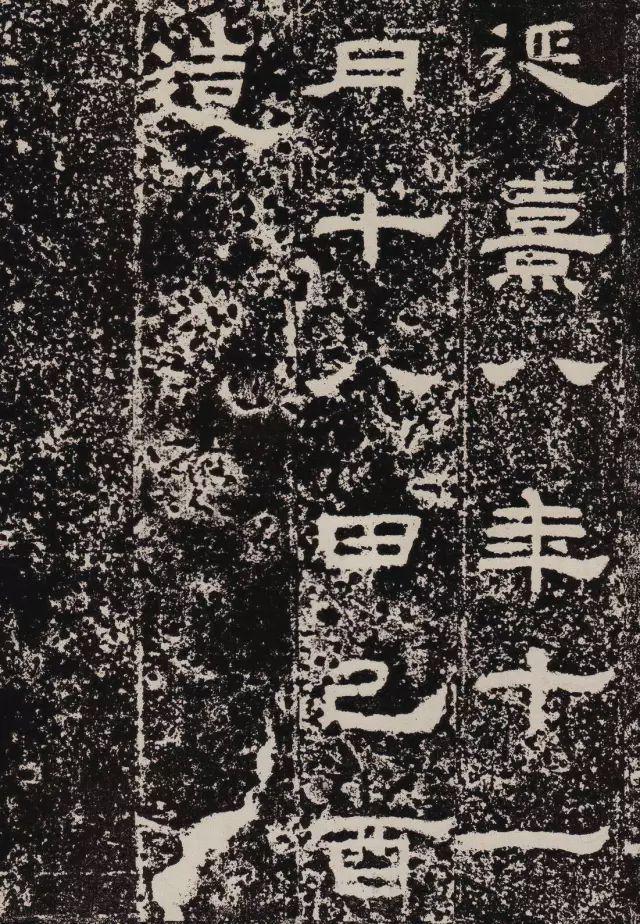 延熹八年十一
月十八甲己酉
造